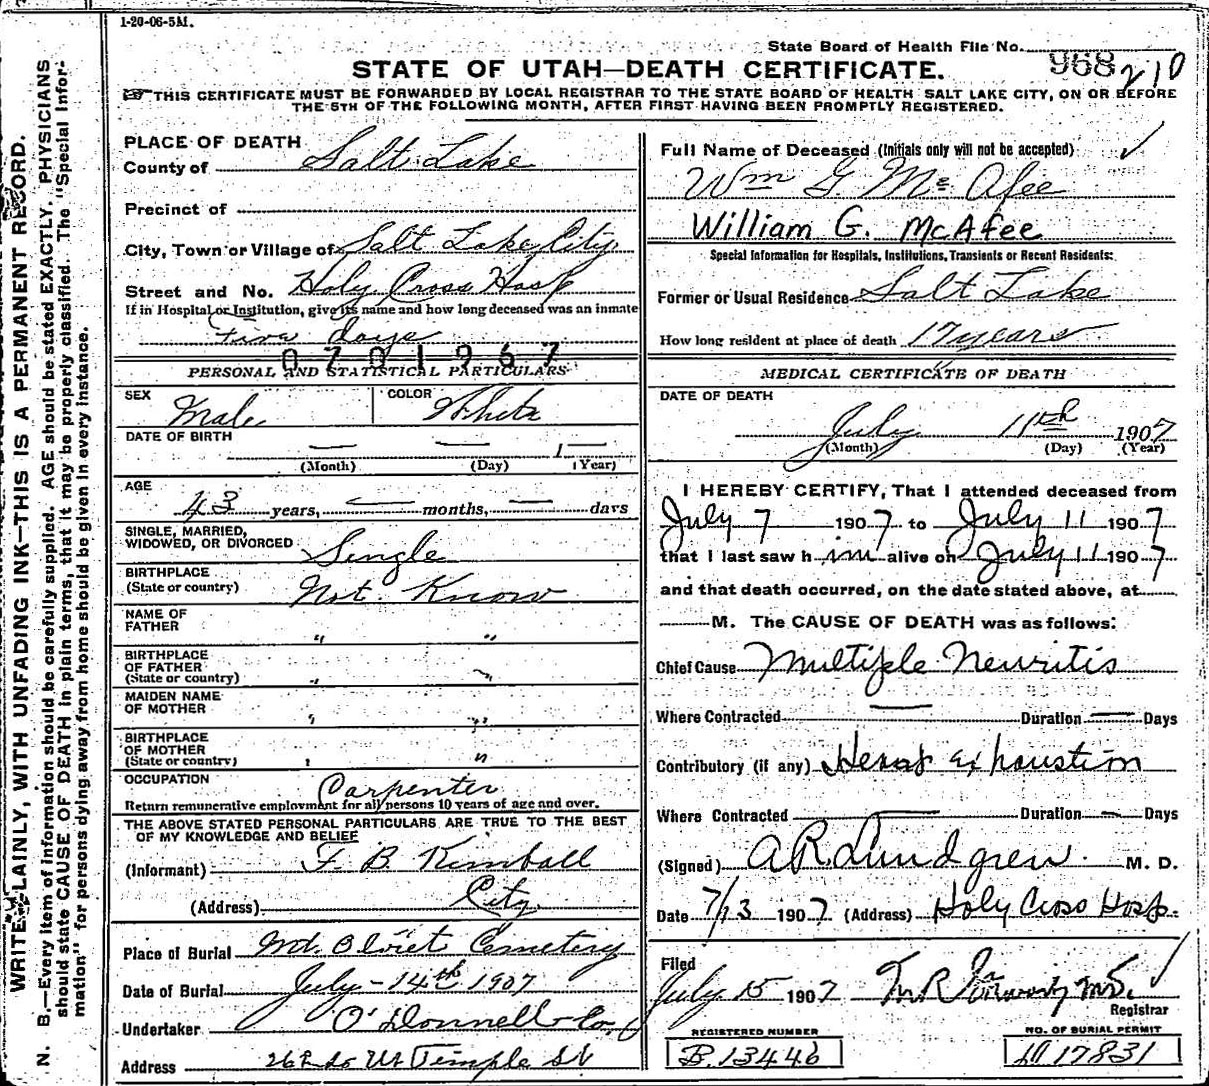 1-20-06-5M.
State Board of Health File No.
968 210
STATE OF UTAH—DEATH CERTIFICATE.
THIS CERTIFICATE MUST BE FORWARDED BY LOCAL REGISTRAR TO THE STATE BOARD OF HEALTH SALT LAKE CITY, ON OR BEFORE
THE 5TH OF THE FOLLOWING MONTH, AFTER FIRST HAVING BEEN PROMPTLY REGISTERED.
WRITE PLAINLY, WITH UNFADING INK—THIS IS A PERMANENT RECORD.
N. B.—Every item of information should be carefully supplied. AGE should be stated EXACTLY. PHYSICIANS
should state CAUSE OF DEATH in plain terms, that it may be properly classified. The "Special Infor-
mation" for persons dying away from home should be given in every instance.
PLACE OF DEATH
County of Salt Lake
Precinct of
City, Town or Village of Salt Lake City
Street and No. Holy Cross Hosp
If in Hospital or Institution, give its name and how long deceased was an inmate
Five days
0701967
PERSONAL AND STATISTICAL PARTICULARS
SEX Male
COLOR White
DATE OF BIRTH — — 1
(Month) (Day) (Year)
AGE
43 years, — months, — days
SINGLE, MARRIED,
WIDOWED, OR DIVORCED Single
BIRTHPLACE
(State or country) Not Know
NAME OF
FATHER " "
BIRTHPLACE
OF FATHER
(State or country) " "
MAIDEN NAME
OF MOTHER " "
BIRTHPLACE
OF MOTHER
(State or country) " "
OCCUPATION Carpenter
Return remunerative employment for all persons 10 years of age and over.
THE ABOVE STATED PERSONAL PARTICULARS ARE TRUE TO THE BEST
OF MY KNOWLEDGE AND BELIEF
(Informant) F. B. Kimball
(Address) City
Place of Burial Mt. Olivet Cemetery
Date of Burial July - 14th 1907
Undertaker O'Donnell & Co.
Address Temple St
Full Name of Deceased (Initials only will not be accepted)
Wm G McAfee
William G. McAfee
Special Information for Hospitals, Institutions, Transients or Recent Residents:
Former or Usual Residence Salt Lake
How long resident at place of death 17 years
MEDICAL CERTIFICATE OF DEATH
DATE OF DEATH
July 11th 1907
(Month) (Day) (Year)
I HEREBY CERTIFY, That I attended deceased from
July 7 1907 to July 11 1907
that I last saw him alive on July 11 1907
and that death occurred, on the date stated above, at
M. The CAUSE OF DEATH was as follows:
Chief Cause Multiple Neuritis
Where Contracted — Duration — Days
Contributory (if any) Heart exhaustion
Where Contracted — Duration — Days
(Signed) A R Lundgren M. D.
Date 7/13 1907 (Address) Holy Cross Hosp.
Filed
July 15 1907
Registrar
REGISTERED NUMBER
B.13446
NO. OF BURIAL PERMIT
17831